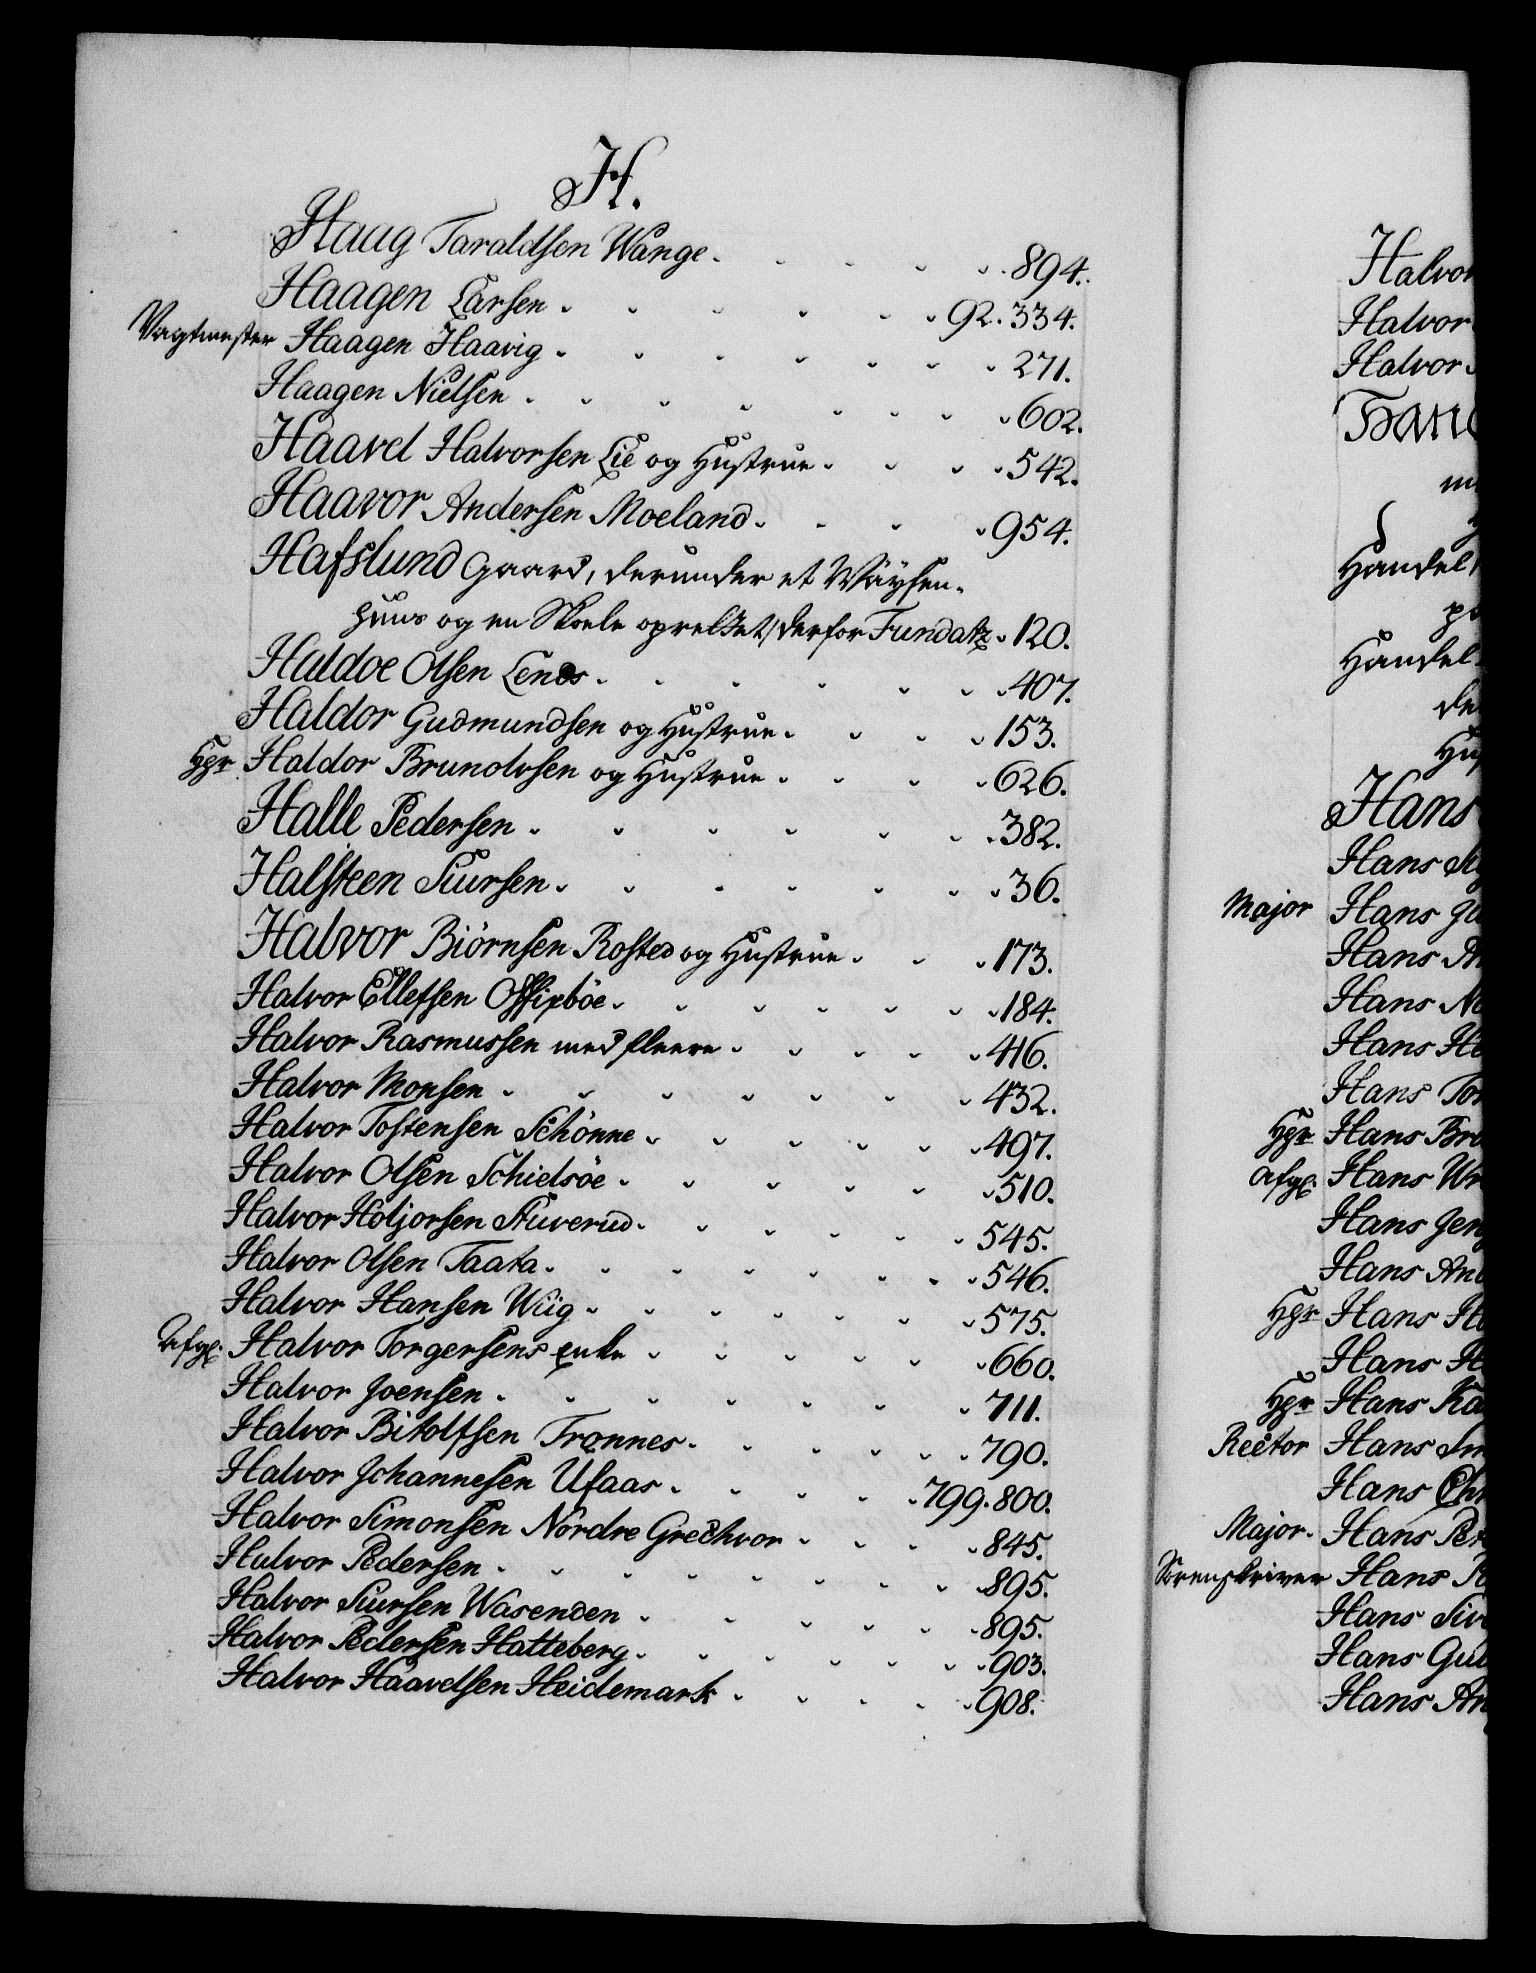 H.
Haag Taraldsen Wange. 894.
Haagen Larsen 92. 334.
Vagtmester Haagen Haavig 271.
Haagen Nielsen 602.
Haavel Halvorsen Lie og Hustrue 542.
Haavor Andersen Moeland 954.
Hafslund Gaard, derunder et Wäysen-
huus og en Skoele oprettet derfor Fundatz 120.
Haldoe Olsen 407.
Haldor Gudmundsen og Hustrue 153.
Hgr Haldor Brunolvsen og Hustrue 626.
Halle Pedersen 382.
Halsteen Siursen 36.
Halvor Biörnsen Rosted og Hustrue 173.
Halvor Ellefsen 184.
Halvor Rasmussen med fleere 416.
Halvor Monsen 432.
Halvor Tostensen Schönne 497.
Halvor Olsen Schielsöe 510.
Halvor Holjorsen Stuverud 545.
Halvor Olsen Taata 546.
Halvor Hansen Wiig 575.
Afgl. Halvor Torgersens Enke 660.
Halvor Joensen 711.
Halvor Bitolfsen Trønnes 790.
Halvor Johannesen Ufaas 799. 800.
Halvor Simonsen Nordre Grechvor 845.
Halvor Pedersen 895.
Halvor Siursen Wasenden 895.
Halvor Pedersen Hatteberg 903.
Halvor Haavelsen Heidemark 908.
Halvor
Halvor
Halvor
Handel
Handel
Hans
Hans
Major Hans
Hans
Hans
Hans
Hans
Hgr Hans
Afgl. Hans
Hans
Hans
Hgr Hans
Hans
Hgr Hans
Rector Hans
Hans
Major. Hans
Sorenskriver Hans
Hans
Hans
Hans